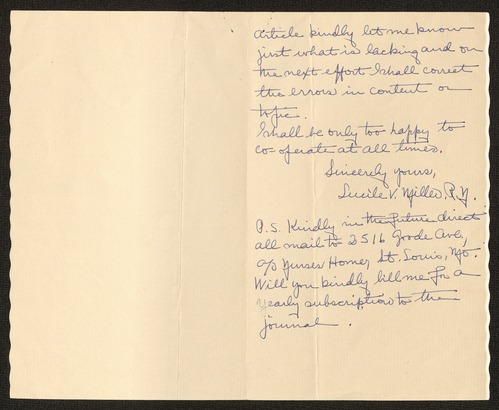 Article kindly let me know
just what is lacking and on
the next effort I shall correct
the errors in content or
topic.
I shall be only too happy to
co-operate at all times.
Sincerely yours,
Lucile V. Miller, R.N.
P.S. Kindly in the future direct
all mail to 2516 Goode Ave,
c/o Nurses Home, St. Louis, Mo.
Will you kindly bill me for a
yearly subscription to the
journal.